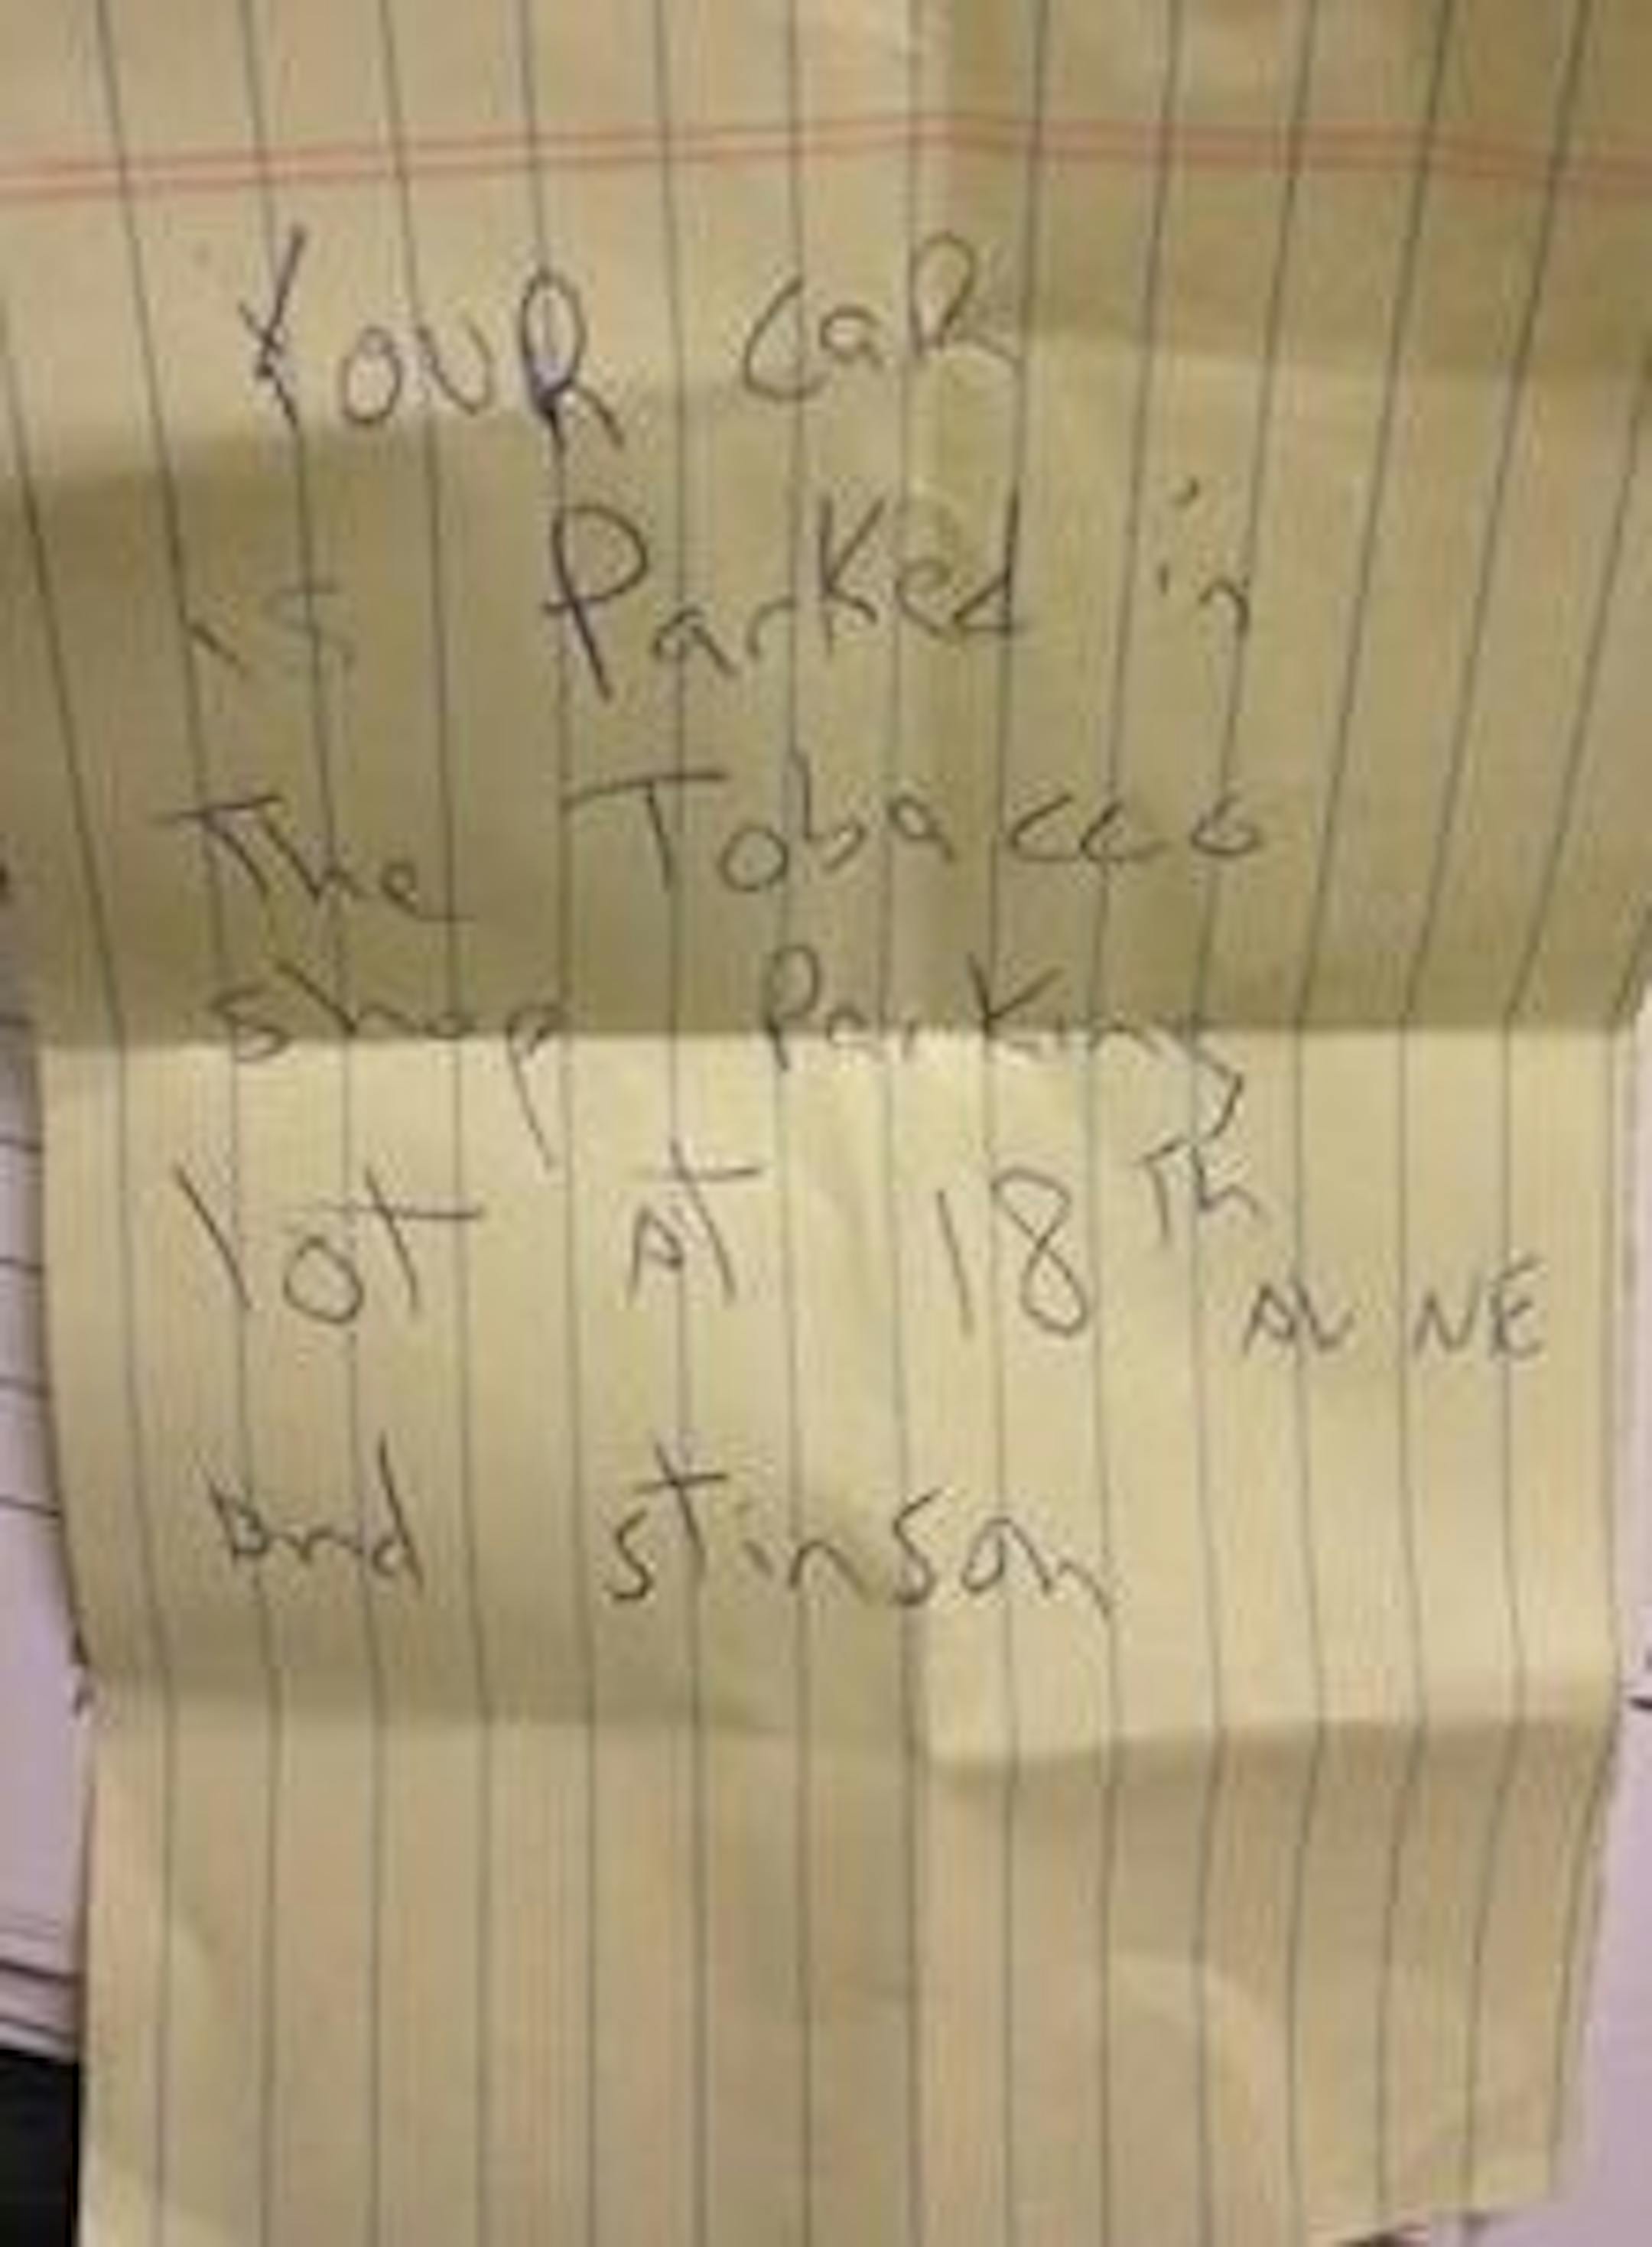 YOUR CaR
is Parked in
The Tobacco
shop Parking
lot At 18Th AV NE
And stinson